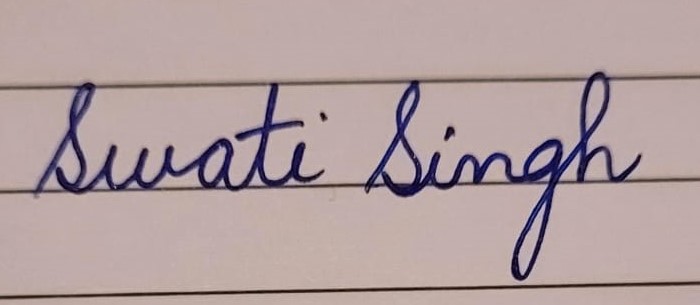 Swati Singh